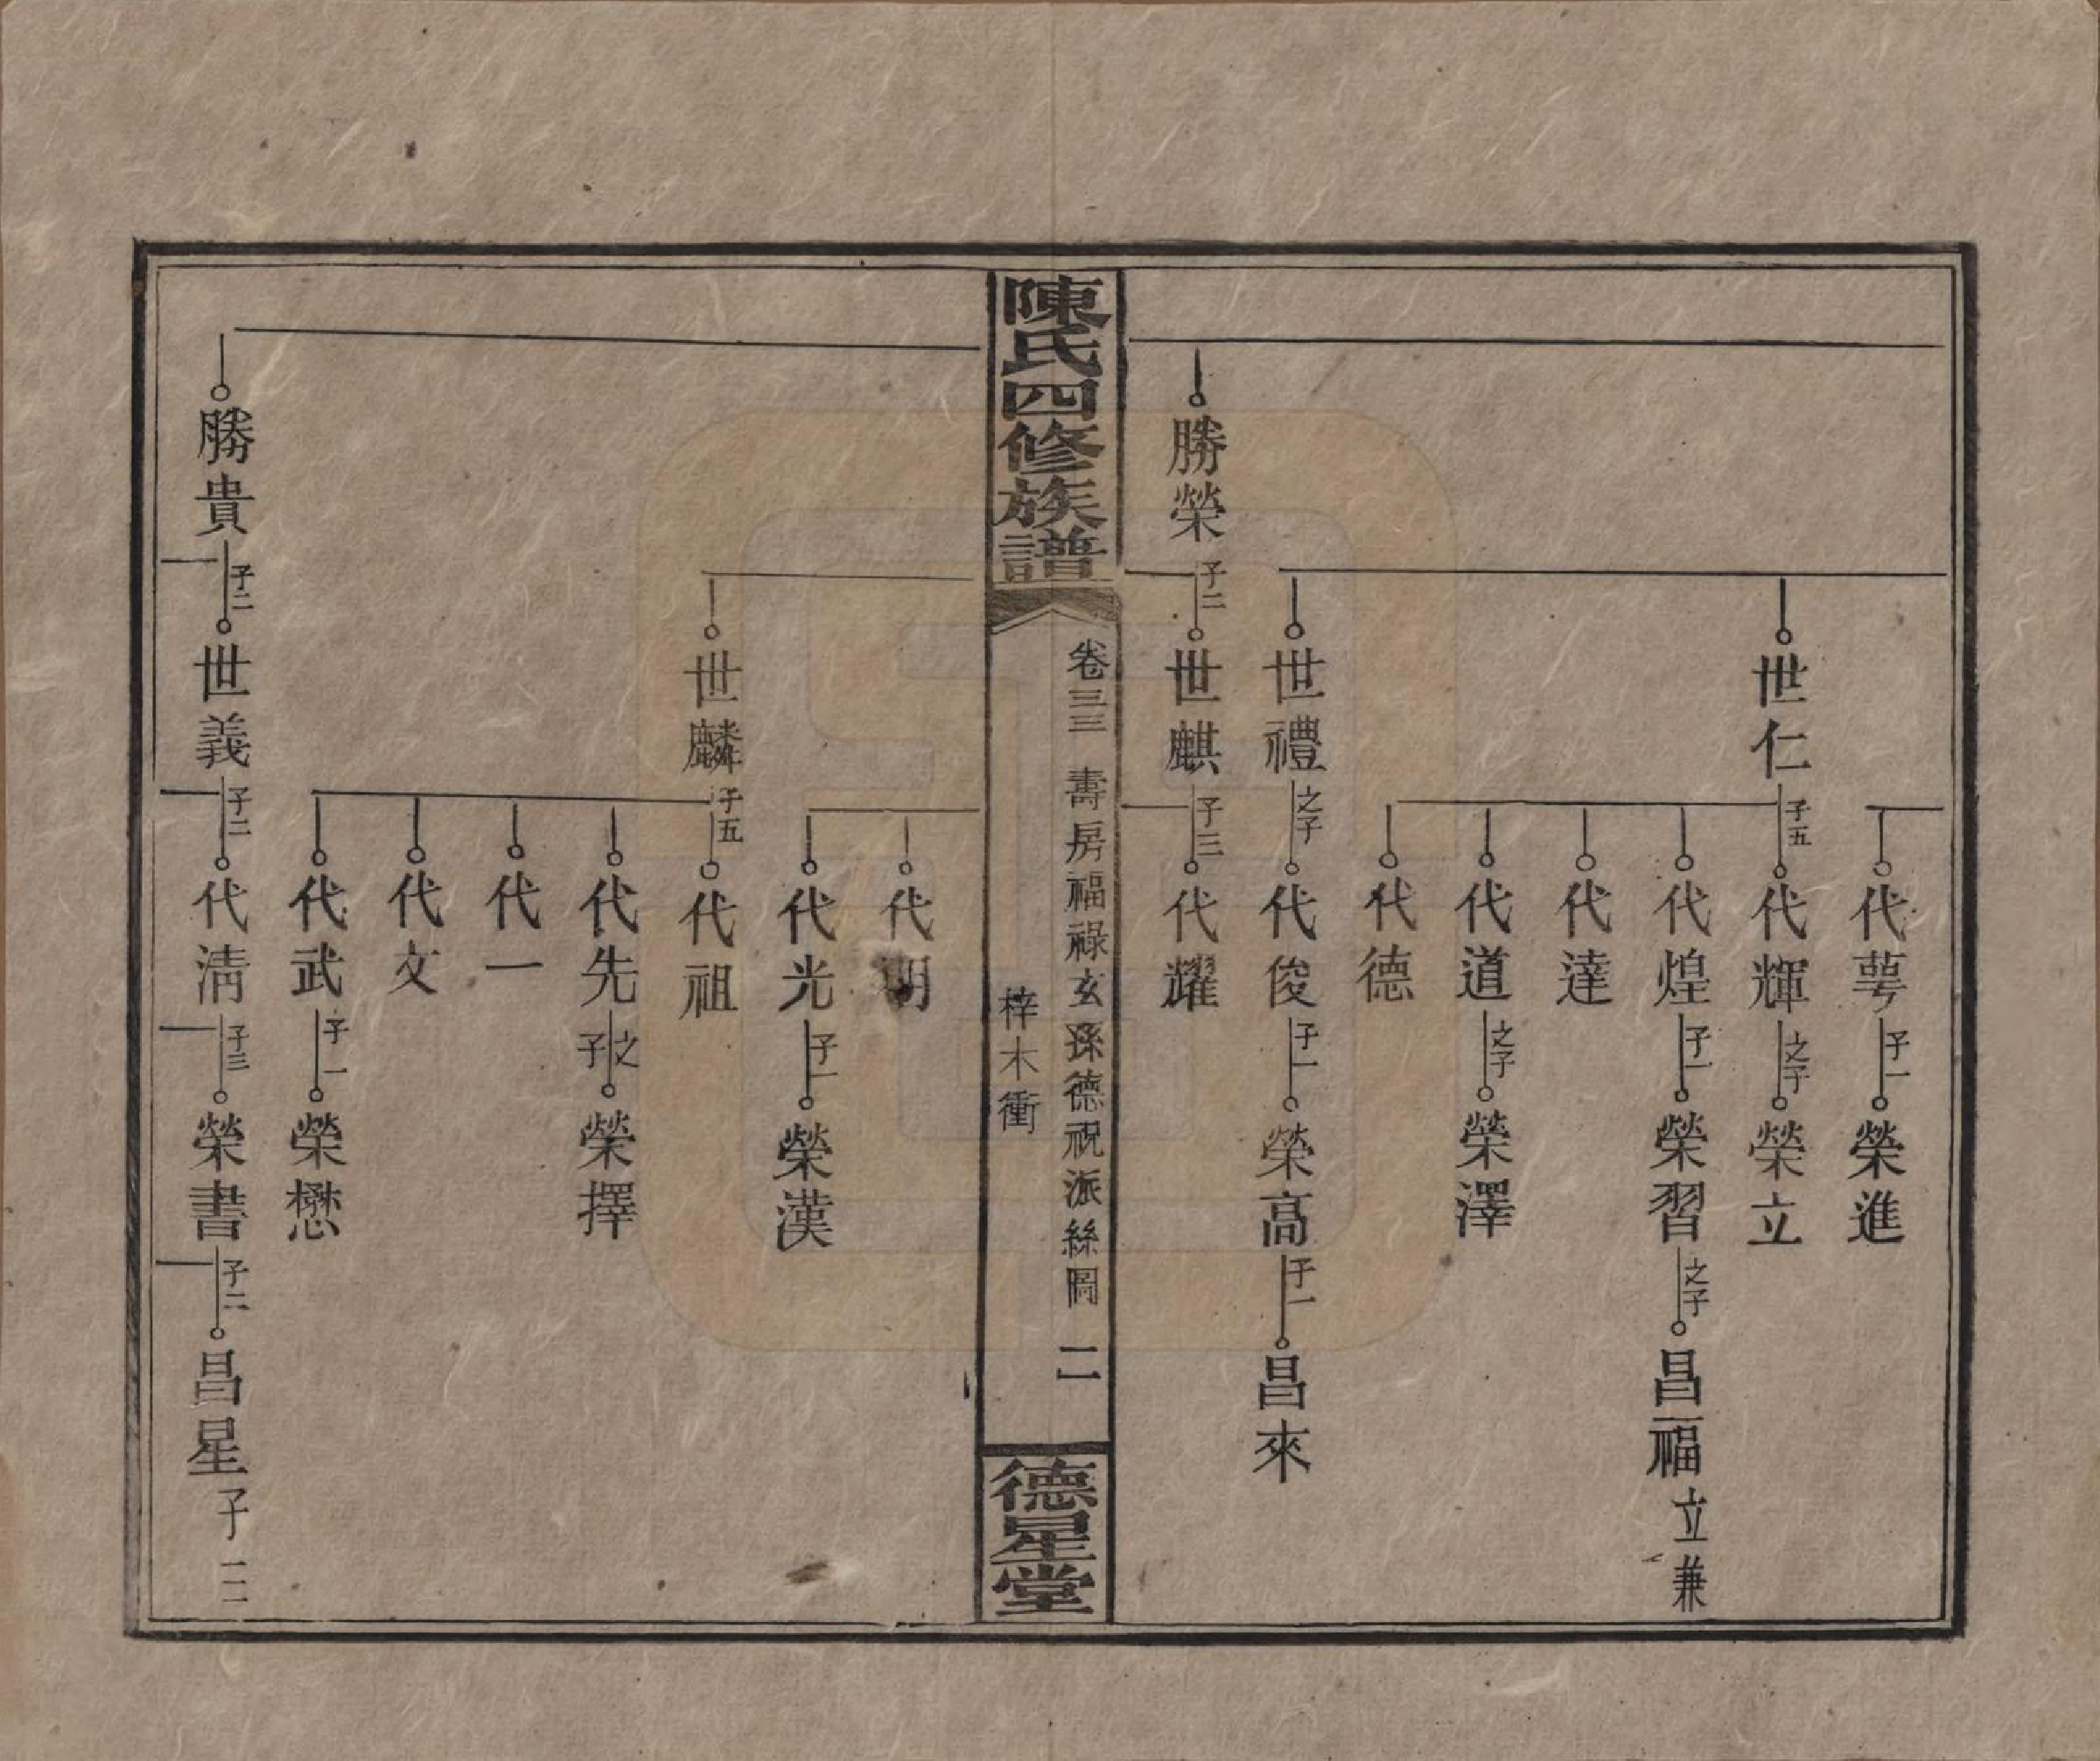 代蕚子一榮進
世仁子五代輝之子榮立
代煌子一榮習之子昌福立兼
代達
代道之子榮澤
代德
世禮之子代俊子一榮高子一昌來
勝榮子二世麒子三代耀
陳氏四修族譜
卷三三 壽房福祿玄孫德祝派絲圖 二
梓木衝
德星堂
代明
代光子一榮漢
世麟子五代祖
代先之子榮擇
代一
代文
代武子一榮懋
勝貴子二世義子二代清子三榮書子二昌星子二